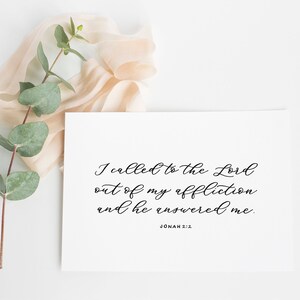 I called to the Lord
out of my affliction
and he answered me.
JONAH 2:2